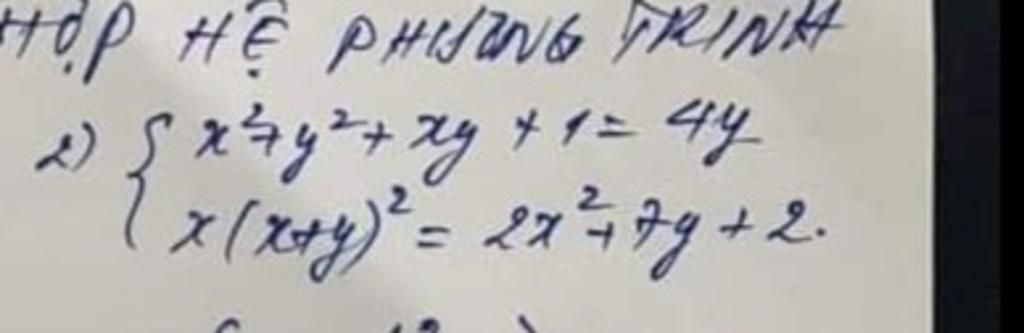 HỢP HỆ PHƯƠNG TRINH
2) { x²+y²+ xy + 1 = 4y
x(x+y)² = 2x²+7y+2.